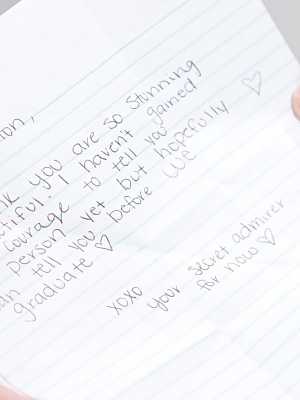 you are so stunning
I haven't gained
courage to tell you
person yet but hopefully
tell you before we
graduate ♡
xoxo
your secret admirer
for now ♡